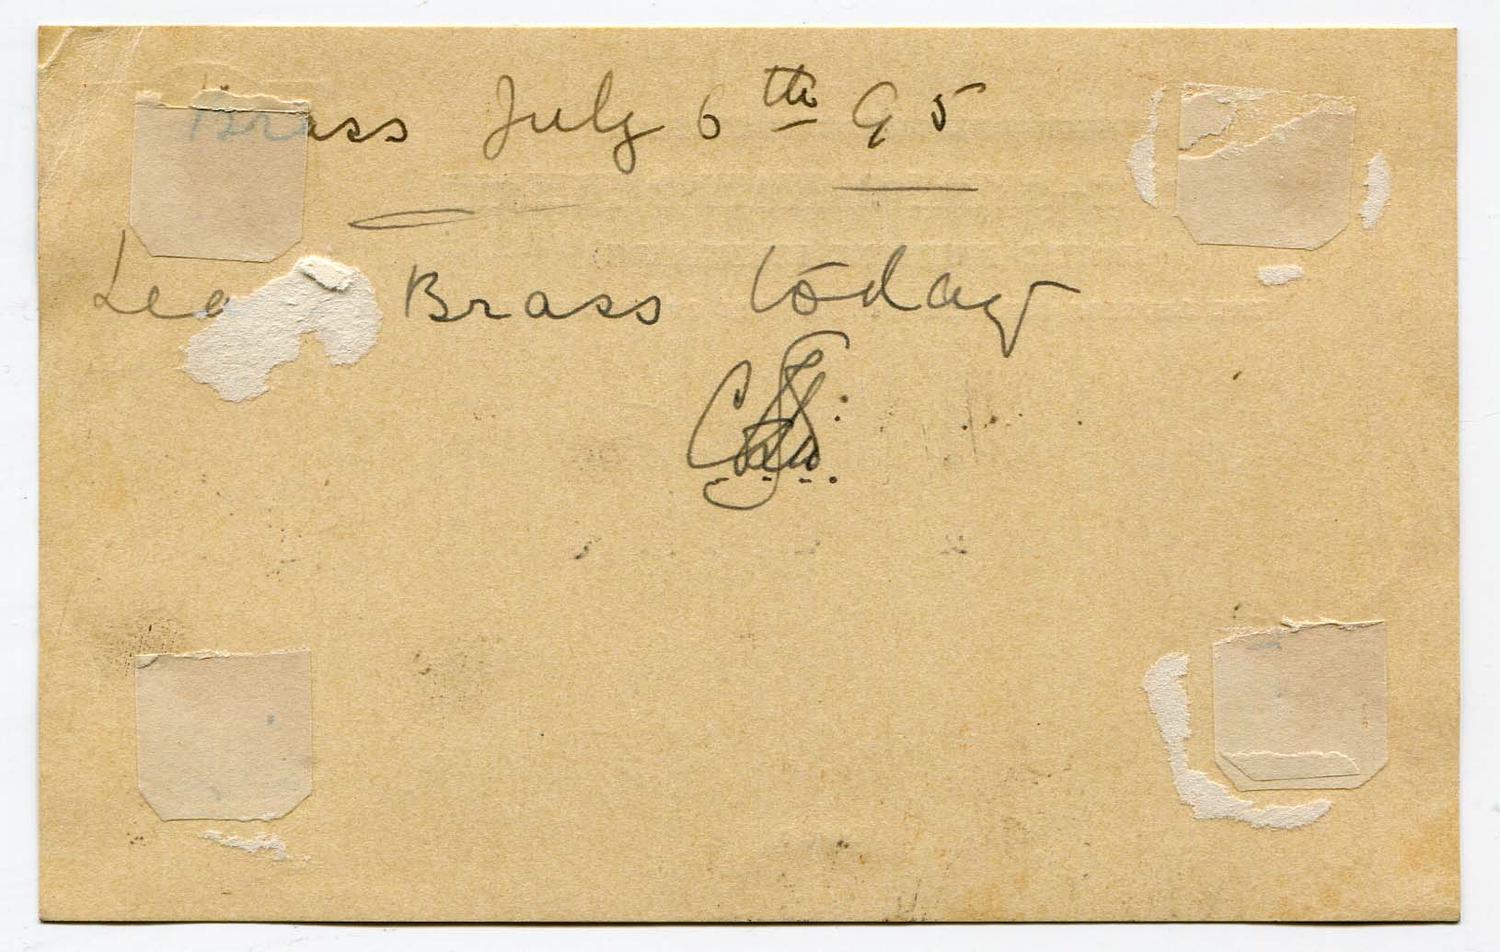 Brass July 6th 95
Lea Brass today